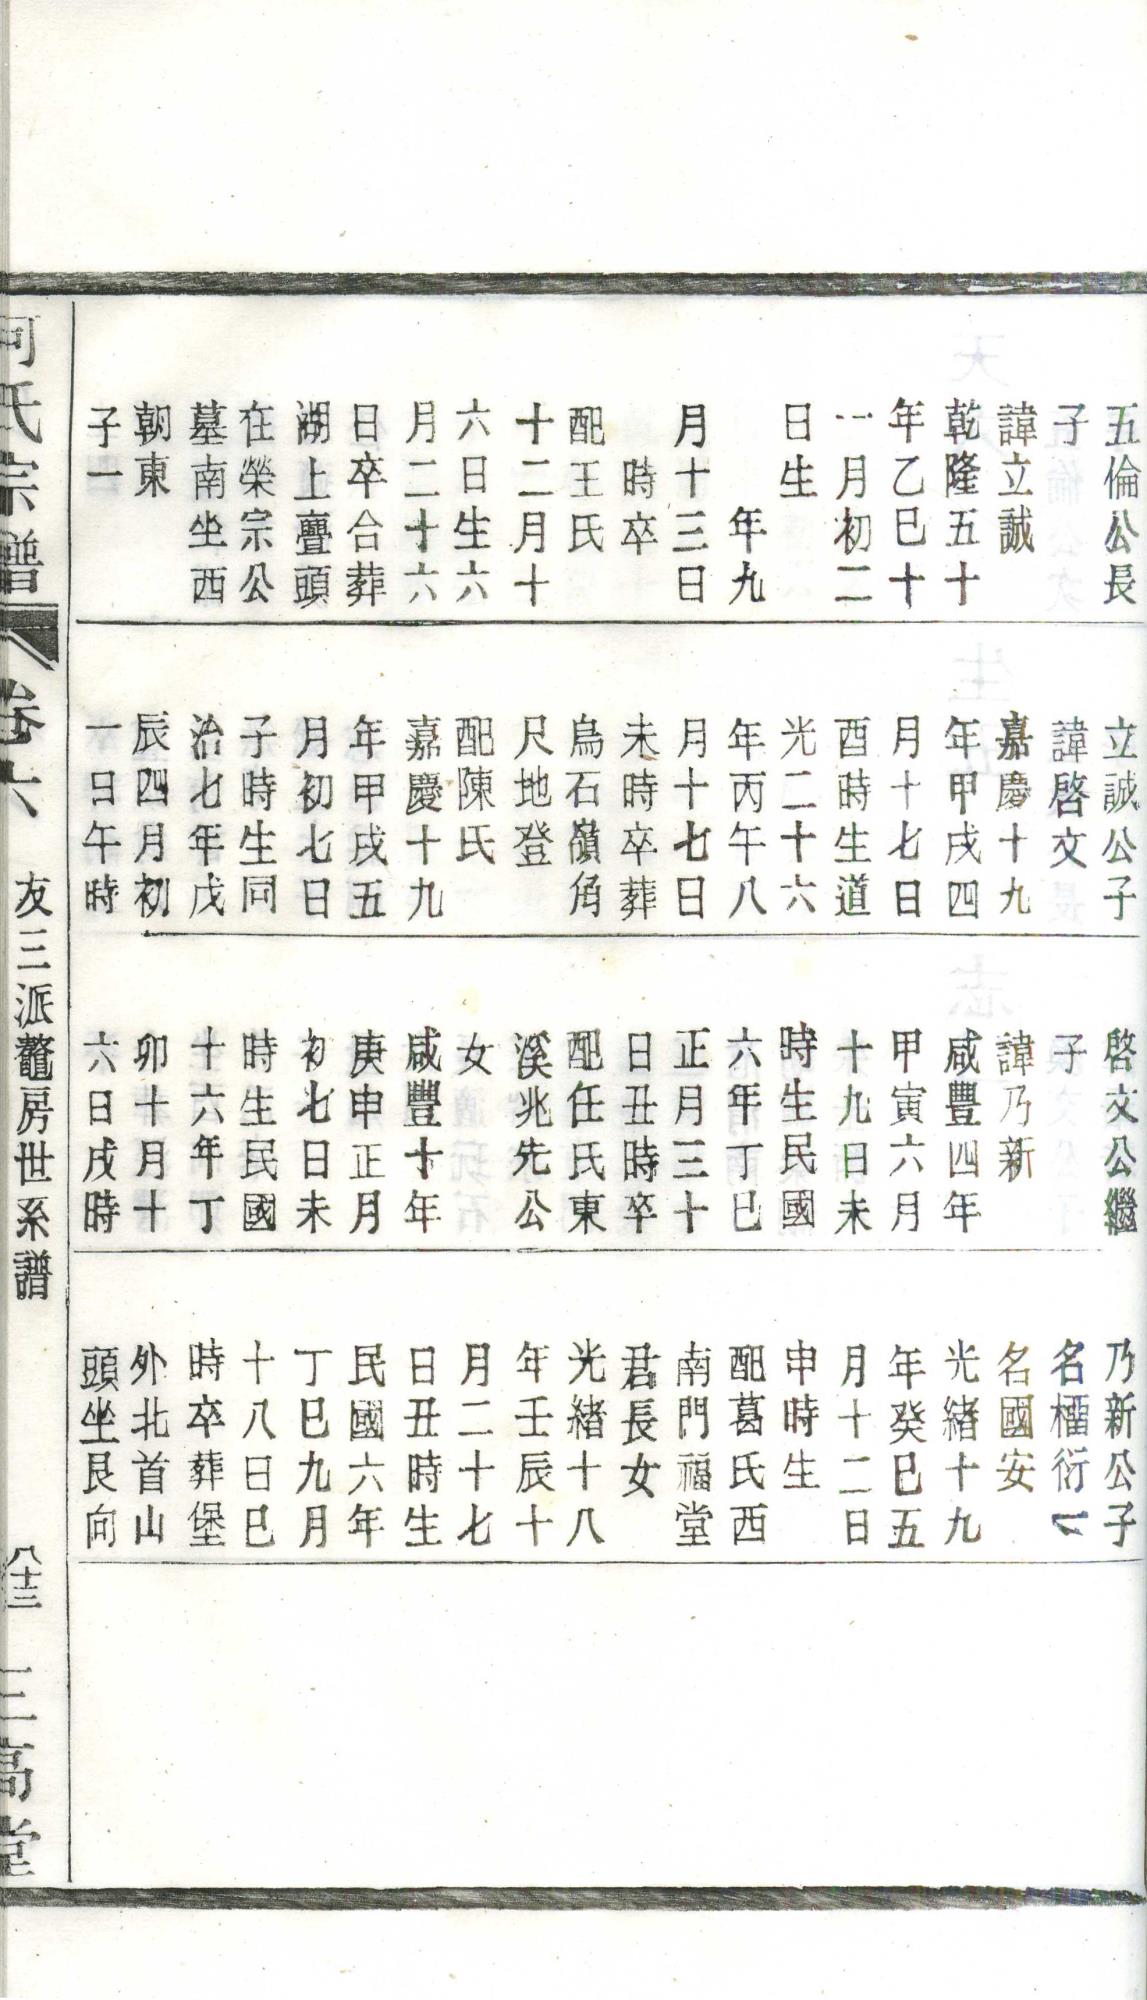 五倫公長
子
諱立誠
乾隆五十
年乙巳十
一月初二
日生
年九
月十三日
時卒
配王氏
十二月十
六日生六
月二十六
日卒合葬
湖上疊頭
在榮宗公
墓南坐西
朝東
子一
立誠公子
諱啓文
嘉慶十九
年甲戌四
月十七日
酉時生道
光二十六
年丙午八
月十七日
未時卒葬
烏石嶺角
尺地登
配陳氏
嘉慶十九
年甲戌五
月初七日
子時生同
治七年戊
辰四月初
一日午時
啓文公繼
子
諱乃新
咸豐四年
甲寅六月
十九日未
時生民國
六年丁巳
正月三十
日丑時卒
配任氏東
溪兆先公
女
咸豐十年
庚申正月
初七日未
時生民國
十六年丁
卯十月十
六日戌時
乃新公子
名櫺衍
名國安
光緒十九
年癸巳五
月十二日
申時生
配葛氏西
南門福堂
君長女
光緒十八
年壬辰十
月二十七
日丑時生
民國六年
丁巳九月
十八日巳
時卒葬堡
外北首山
頭坐艮向
何氏宗譜
卷六
友三派鼇房世系譜
八十三
三高堂